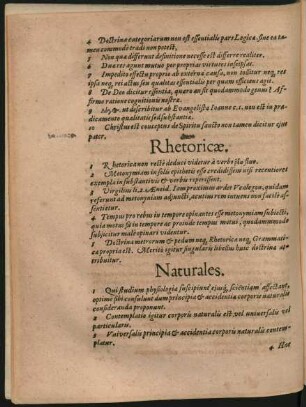 4 Doctrina categoriarum non est essentialis pars Logicæ. sine ea tamen
commodè tradi non potest.
5 Non quæ differunt definitione necesse est differre realiter.
6 Duæ res agunt mutuò per proprias virtutes insitas.
7 Impedito effectu proprio ab externa causa, non tollitur neq, res
ipsa neq, rei actus seu qualitas essentialis per quam efficiens agit.
8 De Deo dicitur essentia, quare an sit quodammodo genus? Affirmo
ratione cognitionis nostræ.
9 ut describitur ab Evangelista Ioanne c. 1. non est in prædicamento
qualitatis sed substantiæ.
10 Christus est conceptus de Spiritu sancto non tamen dicitur ejus
pater.
Rhetoricæ.
1 Rhetorica non rectè deduci videtur à verbo
2 Metonymiam in solis epithetis esse credidissem nisi recentiores
exempla in substantivis & verbis reperissent.
3 Virgilius li. 2. Æneid. Iam proximus ardet Vcalegon, quidam
referunt ad metonymiam adjuncti, acutius rem intuens non
assentietur.
4 Tempus pro rebus in tempore
quia motus sit in tempore ac proinde tempus motui, quodammodo
subjicitur malè opinari videntur.
5 Doctrina metrorum & pedum neq, Rhetorica neq, Grammatica
propria est. Meritò igitur singularis libellus huic doctrinæ attribuitur.
Naturales.
1 Qui studium physiologiæ suscipiunt ejusq, scientiam affectant,
optimè sibi consulunt dum principia & accidentia corporis naturalis
consideranda proponunt.
2 Contemplatio igitur corporis naturalis est vel universalis vel
particularis.
3 Vniversalis principia & accidentia corporis naturalis contemplatur.
4 Hæc